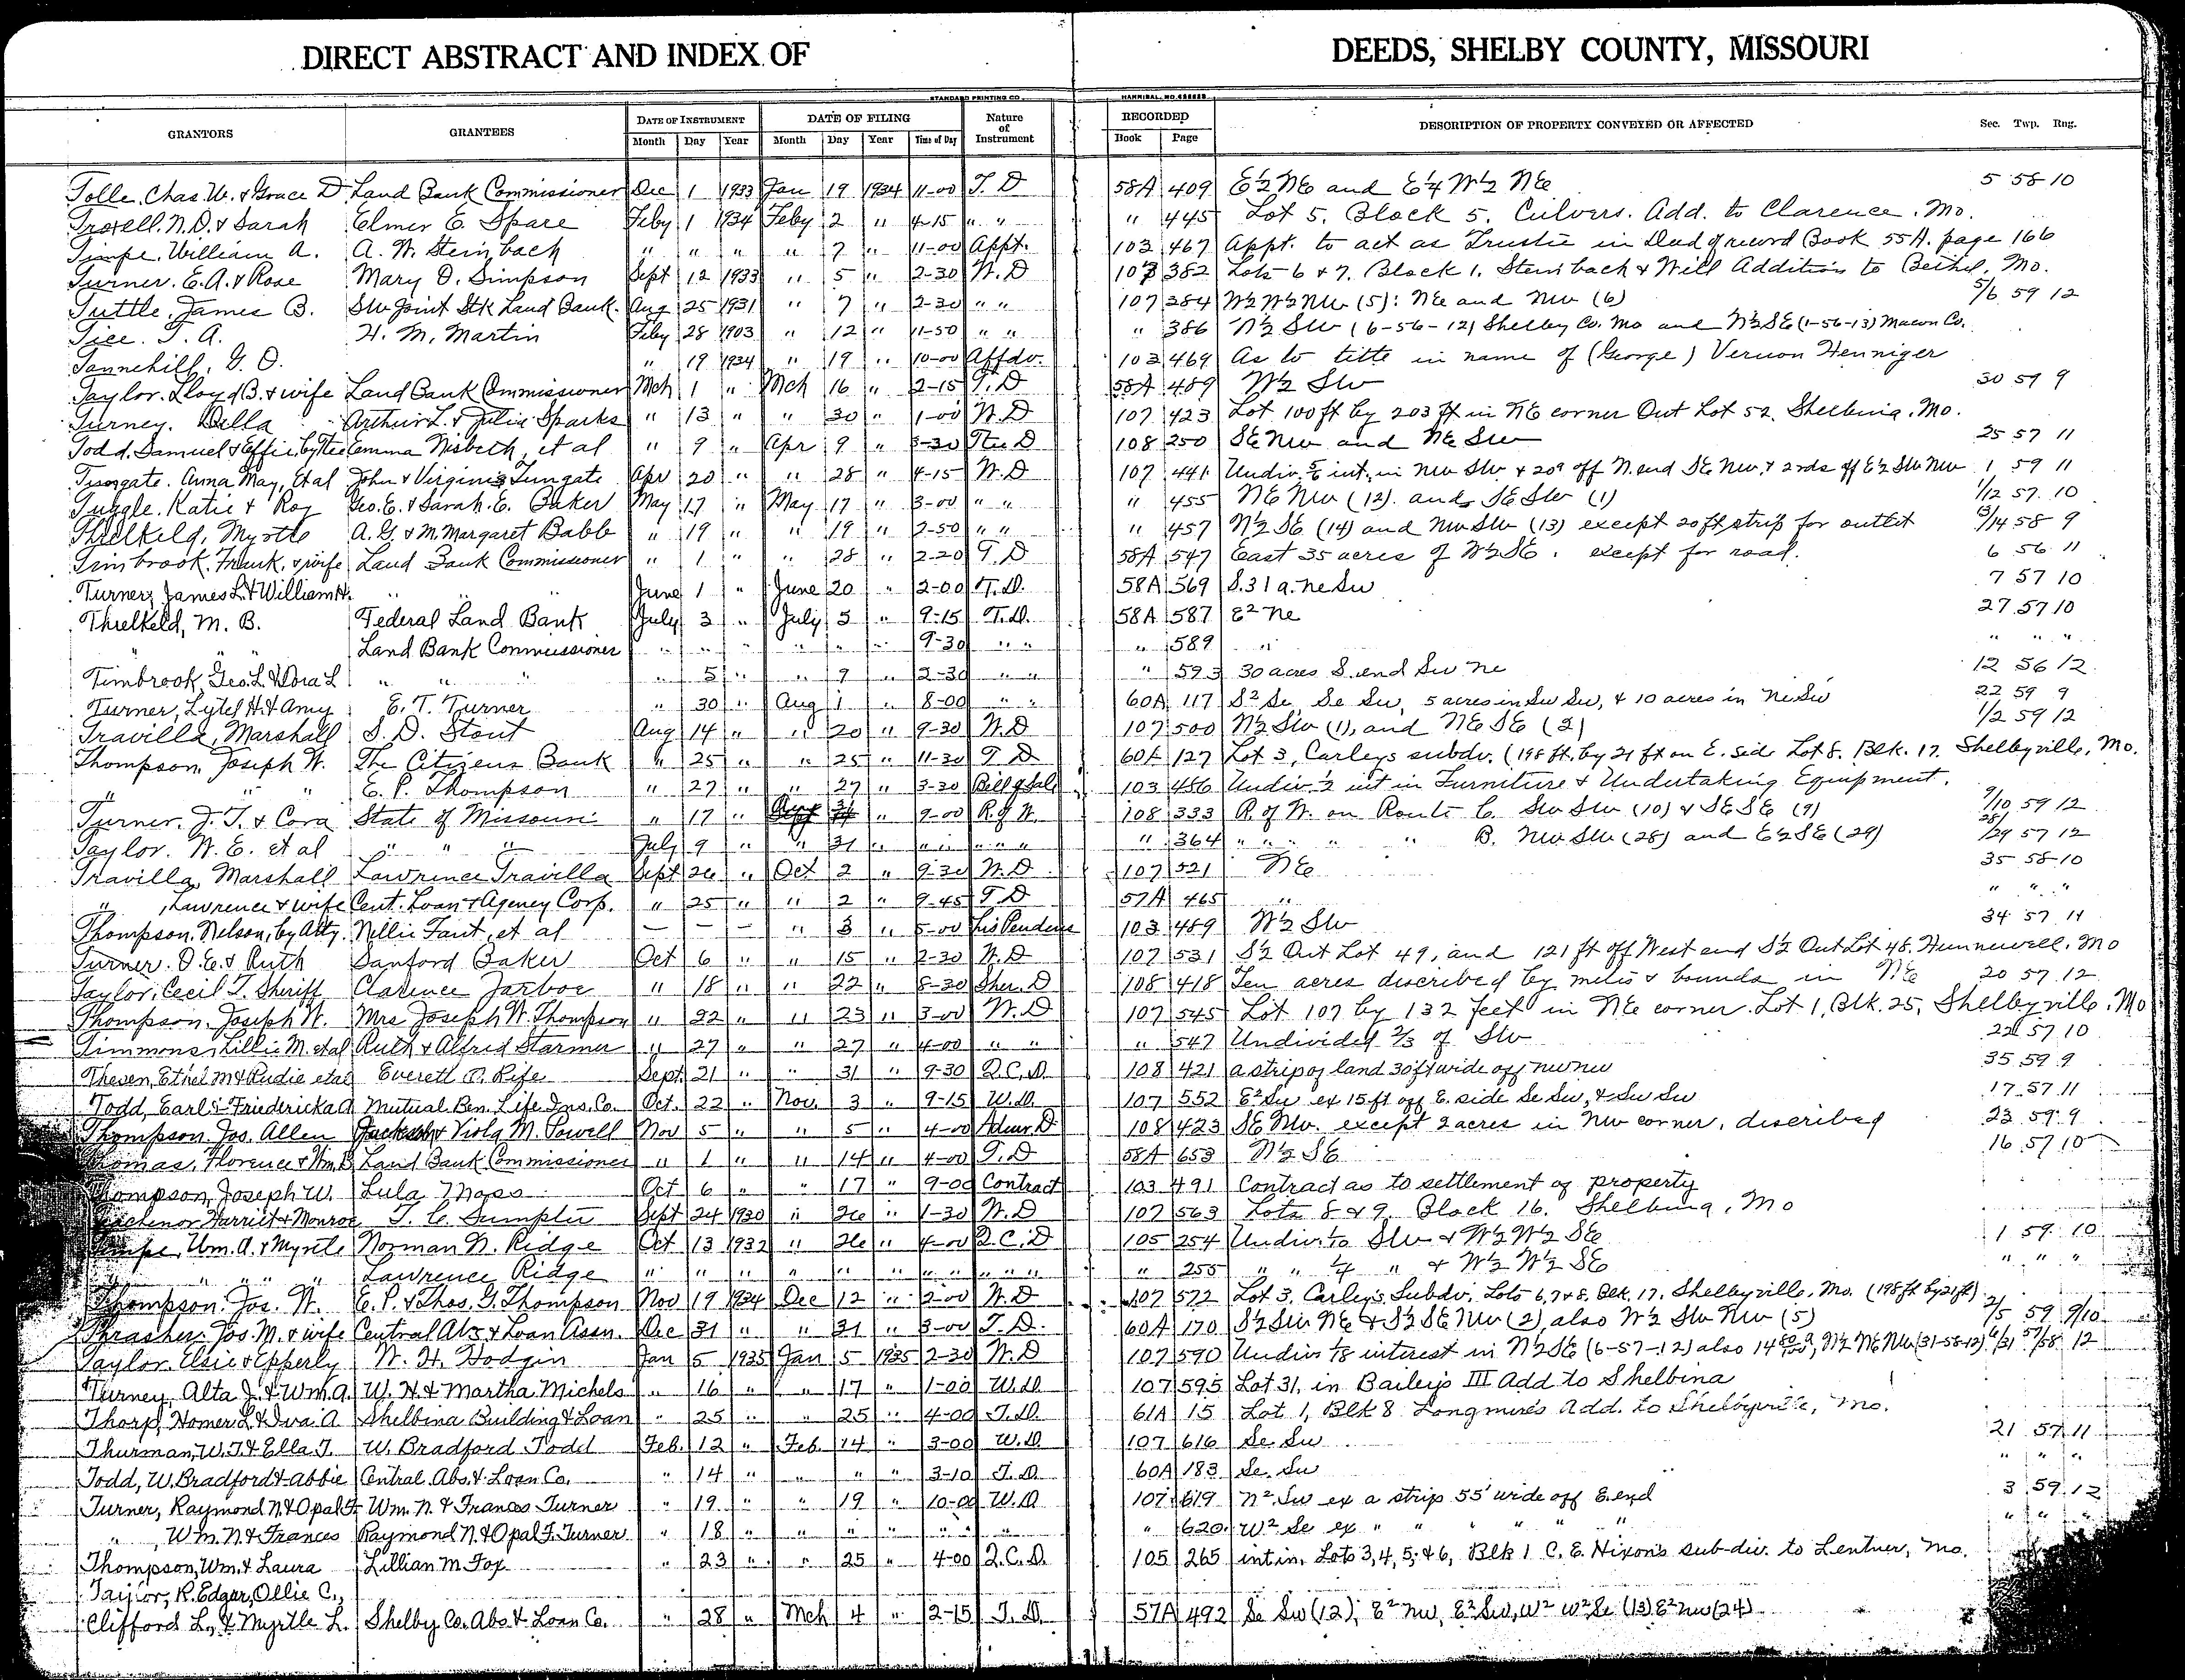 DIRECT ABSTRACT AND INDEX OF DEEDS, SHELBY COUNTY, MISSOURI
STANDARD PRINTING CO. HANNIBAL, MO.
GRANTORS GRANTEES DATE OF INSTRUMENT DATE OF FILING Nature of Instrument RECORDED DESCRIPTION OF PROPERTY CONVEYED OR AFFECTED Sec. Twp. Rng.
Month Day Year Month Day Year Time of Day Book Page
Tolle, Chas. W. & Grace D. Land Bank Commissioner Dec 1 1933 Jan 19 1934 11-00 T. D 58A 409 E½ NE and E¼ W½ NE 5 58 10
Troxell, N.D. & Sarah Elmer E. Spare Feby 1 1934 Feby 2 " 4-15 " " " 445 Lot 5, Block 5, Culvers. Add. to Clarence, Mo.
Timpe, William A. A. W. Steinbach " " " " 7 " 11-00 Appt. 103 467 Appt. to act as Trustee in Deed of record Book 55A. page 166
Turner, E.A. & Rose Mary O. Simpson Sept 12 1933 " 5 " 2-30 W. D 107 382 Lots 6 & 7, Block 1, Steinbach & Will Addition to Bethel, Mo.
Tuttle, James B. Sw Joint Stk Land Bank. Aug 25 1931 " 7 " 2-30 " " 107 384 W½ W½ NW (5): NE and NW (6) 5/6 59 12
Tice, T. A. H. M. Martin Feby 28 1903 " 12 " 11-50 " " " 386 N½ SW (6-56-12) Shelby Co. Mo and N½ SE (1-56-13) Macon Co.
Tannehill, G. O. " 19 1934 " 19 " 10-00 Affdv. 103 469 As to title in name of (George) Vernon Henniger
Taylor, Lloyd B. & wife Land Bank Commissioner Mch 1 " Mch 16 " 2-15 T. D 58A 489 W½ SW 30 59 9
Turney, Della Arthur L. & Julia Sparks " 13 " " 30 " 1-00 W. D 107 423 Lot 100 ft by 203 ft in NE corner Out Lot 52, Shelbina, Mo.
Todd, Samuel & Effie, by Tee Emma Nisbeth, et al " 9 " Apr 9 " 3-30 Tee D 108 250 SE NW and NE SW 25 57 11
Tungate, Anna May, et al John & Virginia Tungate Apr 20 " " 28 " 4-15 W. D 107 441 Undiv. int. in NW SW & 20a off N. end SE NW, & 2 rds off E½ SW NW 1 59 11
Tuggle, Katie & Roy Geo. E. & Sarah E. Baker May 17 " May 17 " 3-00 " " " 455 NE NW (12) and SE SW (1) 1/12 57 10
Threlkeld, Myrtle A. G. & M. Margaret Babb " 19 " " 19 " 2-50 " " " 457 N½ SE (14) and NW SW (13) except 20 ft strip for outlet 13/14 58 9
Timbrook, Frank, & wife Land Bank Commissioner " 1 " " 28 " 2-20 T. D 58A 547 East 35 acres of W½ SE, except for road. 6 56 11
Turner, James L. & William H. " " " June 1 " June 20 " 2-00 T. D. 58A 569 S. 31 a. Ne Sw 7 57 10
Threlkeld, M. B. Federal Land Bank July 3 " July 5 " 9-15 T. D. 58A 587 E² Ne 27 57 10
" " Land Bank Commissioner " " " " " " 9-30 " " " 589 " " " "
Timbrook, Geo. L. & Dora L " " " " 5 " " 9 " 2-30 " " " 593 30 acres S. end Sw Ne 12 56 12
Turner, Lytel H. & Amy E. T. Turner " 30 " Aug 1 " 8-00 " " 60A 117 S² Se, Se Sw, 5 acres in Sw Sw, & 10 acres in Ne Sw 22 59 9
Travilla, Marshall S. D. Stout Aug 14 " " 20 " 9-30 W. D 107 500 N½ SW (1), and NE SE (2) 1/2 59 12
Thompson, Joseph W. The Citizens Bank " 25 " " 25 " 11-30 T D 60A 127 Lot 3, Carleys subdv. (198 ft. by 21 ft on E. side Lot 8, Blk. 17, Shelbyville, Mo.
" " " E. P. Thompson " 27 " " 27 " 3-30 Bill of Sale 103 486 Undiv. ½ int in Furniture & Undertaking Equipment.
Turner, J. T. & Cora State of Missouri " 17 " 31 " 9-00 R. of W. 108 333 R. of W. on Route C. SW SW (10) & SE SE (9) 9/10 59 12
Taylor, W. E. et al " " " July 9 " " 31 " " " " " " " 364 " " " " B. NW SW (28) and E½ SE (29) 28/29 57 12
Travilla, Marshall Lawrence Travilla Sept 26 " Oct 2 " 9-30 W. D 107 521 NE 35 58 10
" , Lawrence & wife Cent. Loan & Agency Corp. " 25 " " 2 " 9-45 T D 57A 465 " " " "
Thompson, Nelson, by Atty. Nellie Fant, et al — — — " 3 " 5-00 Lis Pendens 103 489 W½ SW 34 57 11
Turner, O. E. & Ruth Sanford Baker Oct 6 " " 15 " 2-30 W. D 107 531 S½ Out Lot 49, and 121 ft off West end S½ Out Lot 48, Hunnewell, Mo
Taylor, Cecil T. Sheriff Clarence Jarboe " 18 " " 22 " 8-30 Sher. D 108 418 Ten acres described by metes & bounds in NE 20 57 12
Thompson, Joseph W. Mrs Joseph W. Thompson " 22 " " 23 " 3-00 W. D 107 545 Lot 107 by 132 feet in NE corner Lot 1, Blk. 25, Shelbyville, Mo
Timmons, Lillie M. et al Ruth & Alfred Starmer " 27 " " 27 " 4-00 " " " 547 Undivided ⅔ of SW 22 57 10
Theven, Ethel M & Rudie et al Everett P. Rife Sept. 21 " " 31 " 9-30 Q. C. D. 108 421 a strip of land 30 ft wide off NW NW 35 59 9
Todd, Earl & Friedericka A Mutual Ben. Life Ins. Co. Oct. 22 " Nov. 3 " 9-15 W. D. 107 552 E² Sw ex 15 ft off E. side Se Sw, & Sw Sw 17 57 11
Thompson, Jos. Allen Jackson & Viola M. Powell Nov 5 " " 5 " 4-00 Admr. D 108 423 SE NW. except 2 acres in NW corner, described 23 59 9
Thomas, Florence & Wm. B. Land Bank Commissioner " 1 " " 14 " 4-00 T. D 58A 653 N½ SE 16 57 10
Thompson, Joseph W. Lula Moss Oct 6 " " 17 " 9-00 Contract 103 491 Contract as to settlement of property
Harriet & Monroe T. C. Sumpter Sept 24 1930 " 26 " 1-30 W. D 107 563 Lots 8 & 9, Block 16, Shelbina, Mo
Timpe, Wm. A. & Myrtle Norman N. Ridge Oct 13 1932 " 26 " 4-00 Q. C. D 105 254 Undiv. SW & W½ W½ SE 1 59 10
" " " " Lawrence Ridge " " " " " " " " " " " " 255 " " ¼ " & W½ W½ SE " " "
Thompson, Jos. W. E. P. & Thos. G. Thompson Nov 19 1934 Dec 12 " 2-00 W. D 107 572 Lot 3, Carley's Subdiv. Lots 6, 7 & 8, Blk. 17, Shelbyville, Mo. (198 ft by 21 ft)
Thrasher, Jos. M. & wife Central Abs & Loan Assn. Dec 31 " " 31 " 3-00 T. D. 60A 170 S½ SW NE & S½ SE NW (2), also W½ SW NW (5) 2/5 59 9/10
Taylor, Elsie & Epperly W. H. Hodgin Jan 5 1935 Jan 5 1935 2-30 W. D 107 590 Undiv. ⅛ interest in N½ SE (6-57-12) also 14 80/100 a, N½ NE NW (31-58-12) 6/31 57/58 12
Turney, Alta J. & Wm. A. W. H. & Martha Michels " 16 " " 17 " 1-00 W. D. 107 595 Lot 31, in Bailey's III Add to Shelbina
Thorp, Homer L & Iva A Shelbina Building & Loan " 25 " " 25 " 4-00 T. D. 61A 15 Lot 1, Blk 8 Longmire's Add. to Shelbyville, Mo.
Thurman, W. T. & Ella J. W. Bradford Todd Feb. 12 " Feb. 14 " 3-00 W. D. 107 616 Se. Sw 21 57 11
Todd, W. Bradford & Abbie Central Abs. & Loan Co. " 14 " " " " 3-10 T. D. 60A 183 Se. Sw " " "
Turner, Raymond N. & Opal F. Wm. N. & Frances Turner " 19 " " 19 " 10-00 W. D 107 619 N² Sw ex a strip 55' wide off E. end 3 59 12
" , Wm. N. & Frances Raymond N. & Opal F. Turner " 18 " " " " " " " " 620 W² Se ex " " " " " " " "
Thompson, Wm. & Laura Lillian M. Fox " 23 " " 25 " 4-00 Q. C. D. 105 265 int in, Lots 3, 4, 5, & 6, Blk 1 C. E. Hixon's sub-div. to Lentner, Mo.
Taylor, R. Edgar, Ollie C.,
Clifford L., & Myrtle L. Shelby Co. Abs. & Loan Co. " 28 " Mch 4 " 2-15 T. D. 57A 492 Se Sw (12); E² NW, E² SW, W² W² Se (13) E² NW (24)